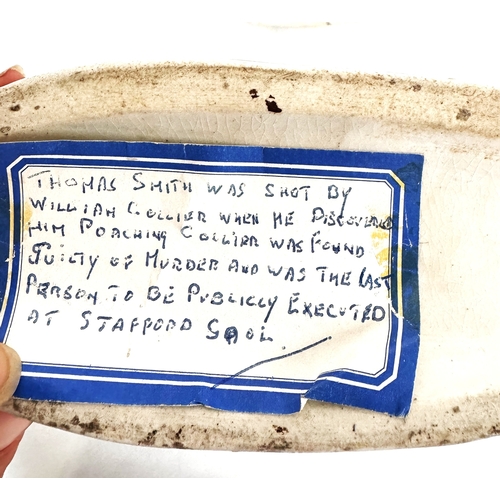 THOMAS SMITH WAS SHOT BY
WILLIAM COLLIER WHEN HE DISCOVERED
HIM POACHING COLLIER WAS FOUND
GUILTY OF MURDER AND WAS THE LAST
PERSON TO BE PUBLICLY EXECUTED
AT STAFFORD GAOL